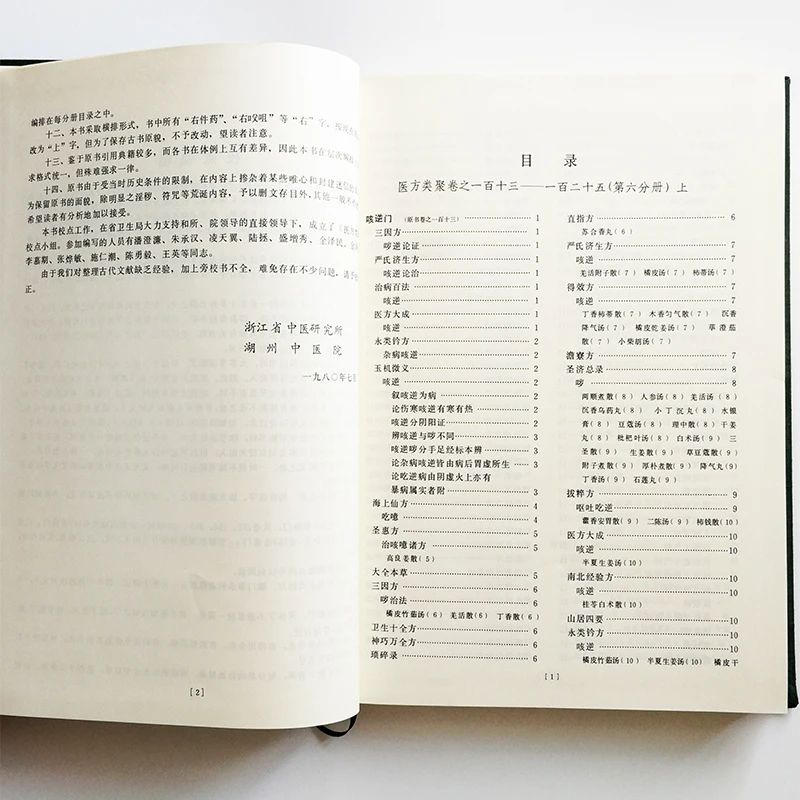 编排在每分册目录之中。
十二、本书采取横排形式，书中所有“右件药”、“右㕮咀”等“右”字，
改为“上”字，但为了保存古书原貌，不予改动，望读者注意。
十三、鉴于原书引用典籍较多，而各书在体例上互有差异，因此本书在层次
求格式统一，但殊难强求一律。
十四、原书由于受当时历史条件的限制，在内容上掺杂着某些唯心和封建迷信的
为保留原书的面貌，除明显之淫秽、符咒等荒诞内容，予以删文存目外，其他一般不
希望读者有分析地加以接受。
本书校点工作，在省卫生局大力支持和所、院领导的直接领导下，成立了《医方
校点小组。参加编写的人员有潘澄濂、朱承汉、凌天翼、陆拯、盛增秀、全泽民、
李慕期、张烨敏、施仁潮、陈勇毅、王英等同志。
由于我们对整理古代文献缺乏经验，加上旁校书不全，难免存在不少问题，请
正。
浙江省中医研究所
湖州中医院
一九八〇年七
[2]
目录
医方类聚卷之一百十三——一百二十五(第六分册)上
咳逆门 (原书卷之一百十三) 1
三因方 1
哕逆论证 1
严氏济生方 1
咳逆论治 1
治病百法 1
咳逆 1
医方大成 1
咳逆 1
永类钤方 2
杂病咳逆 2
玉机微义 2
咳逆 2
叙咳逆为病 2
论伤寒咳逆有寒有热 2
咳逆分阴阳证 2
辨咳逆与哕不同 3
咳逆哕分手足经标本辨 3
论杂病咳逆皆由病后胃虚所生 3
论吃逆病由阴虚火上亦有
暴病属实者附 3
海上仙方 4
吃噫 4
圣惠方 5
治咳噫诸方 5
高良姜散(5)
大全本草 5
三因方 6
哕治法 6
橘皮竹茹汤(6) 羌活散(6) 丁香散(6)
卫生十全方 6
神巧万全方 6
琐碎录 6
直指方 6
苏合香丸(6)
严氏济生方 7
咳逆 7
羌活附子散(7) 橘皮汤(7) 柿蒂汤(7)
得效方 7
咳逆 7
丁香柿蒂散(7) 木香匀气散(7) 沉香
降气汤(7) 橘皮乾姜汤(7) 荜澄茄
散(7) 小柴胡汤(7)
澹寮方 7
圣济总录 8
哕 8
两顺煮散(8) 人参汤(8) 羌活汤(8)
沉香乌药丸(8) 小丁沉丸(8) 水银
膏(8) 豆蔻汤(8) 理中散(8) 干姜
丸(8) 枇杷叶汤(8) 白术汤(9) 三
圣散(9) 生姜散(9) 草豆蔻散(9)
附子煮散(9) 厚朴煮散(9) 降气丸(9)
丁香汤(9) 石莲丸(9)
拔粹方 9
呕吐吃逆 9
藿香安胃散(9) 二陈汤(9) 柿钱散(10)
医方大成 10
咳逆 10
半夏生姜汤(10)
南北经验方 10
咳逆 10
桂苓白术散(10)
山居四要 10
永类钤方 10
咳逆 10
橘皮竹茹汤(10) 半夏生姜汤(10) 橘皮干
[1]